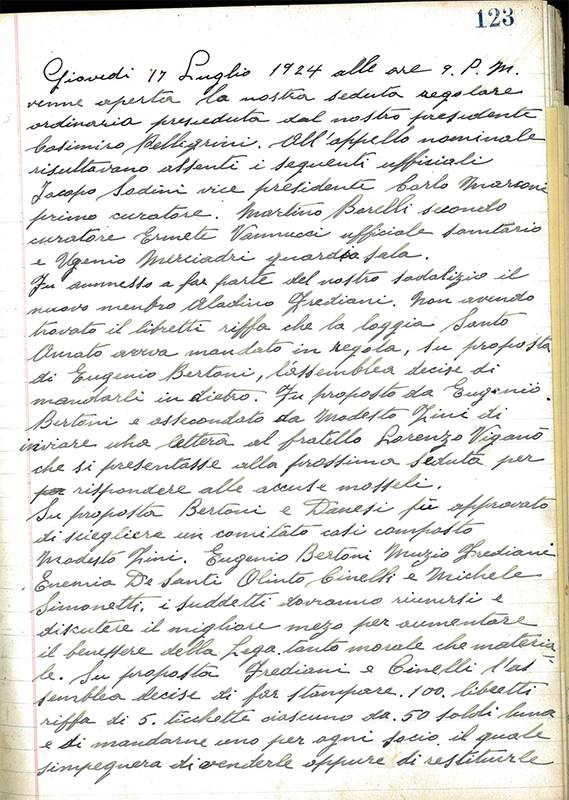 123
Giovedi 17 Luglio 1924 alle ore 9. P. M.
venne aperta la nostra seduta regolare
ordinaria presieduta dal nostro presidente
Casimiro Pellegrini. All'appello nominale
risultavano assenti i seguenti ufficiali
Jacopo Sodini vice presidente Carlo Marconi
primo curatore. Martino Barelli secondo
curatore Ermete Vannucci ufficiale sanitario
e Ugenio Merciadri guardia sala.
Fu ammesso a far parte del nostro sodalizio il
nuovo menbro Aladino Frediani. Non avendo
trovato il libretti riffa che la loggia Santo
Amato avvva mandato in regola, su proposta
di Eugenio Bertoni, l'assemblea decise di
mandarli in dietro. Fu proposto da Eugenio
Bertoni e assecondato da Modesto Zini di
inviare una lettera al fratello Lorenzo Viganò
che si presentasse alla prossima seduta per
rispondere alle accuse mosseli.
Su proposta Bertoni e Danesi fù approvato
di sciegliere un comitato cosi composto
Modesto Zini. Eugenio Bertoni Muzio Frediani
De Santi Olinto Cinelli e Michele
Simonetti. i suddetti dovranno riunirsi e
discutere il migliore mezo per aumentare
il benessere della Lega tanto morale che materia-
le. Su proposta Frediani e Cinelli l'as
semblea decise di far stampare. 100. libretti
riffa di 5. ticchette ciascuno da. 50 soldi l'una
e di mandarne uno per ogni socio il quale
simpegnera di venderle oppure di restituirle